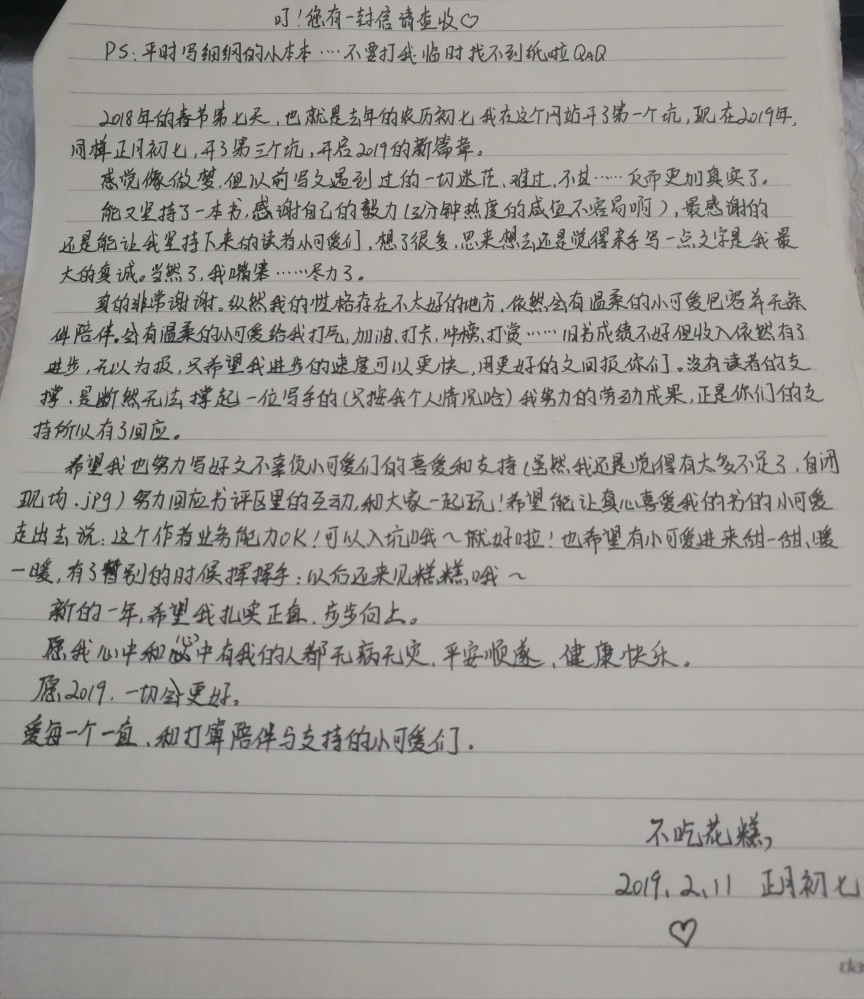 叮!您有一封信请查收♡
PS:平时写细纲的小本本……不要打我临时找不到纸啦QAQ
2018年的春节第七天,也就是去年的农历初七我在这个网站开了第一个坑,现在2019年,
同样正月初七,开了第三个坑,开启2019的新篇章。
感觉像做梦,但以前写文遇到过的一切迷茫、难过、不甘……反而更加真实了。
能又坚持了一本书,感谢自己的毅力(三分钟热度的咸鱼不容易啊),最感谢的
还是能让我坚持下来的读者小可爱们,想了很多,思来想去还是觉得亲手写一点文字是我最
大的真诚。当然了,我嘴笨……尽力了。
真的非常谢谢。纵然我的性格存在不太好的地方,依然会有温柔的小可爱包容并无条
件陪伴。会有温柔的小可爱给我打气,加油,打卡,冲榜,打赏……旧书成绩不好但收入依然有了
进步,无以为报,只希望我进步的速度可以更快,用更好的文回报你们。没有读者的支
撑,是断然无法撑起一位写手的(只按我个人情况哈)我努力的劳动成果,正是你们的支
持所以有了回应。
希望我也努力写好文不辜负小可爱们的喜爱和支持(虽然我还是觉得有太多不足了,自闭
现场.jpg)努力回应书评区里的互动,和大家一起玩!希望能让真心喜爱我的书的小可爱
走出去说:这个作者业务能力OK!可以入坑哦~就好啦!也希望有小可爱进来甜一甜、暖
一暖,有了暂别的时候挥挥手:以后还来见糕糕哦~
新的一年,希望我扎实正直、步步向上。
愿我心中和心中有我的人都无病无灾,平安顺遂、健康快乐。
愿2019,一切会更好。
爱每一个一直、和打算陪伴与支持的小可爱们.
不吃花糕,
2019.2.11 正月初七
♡
da